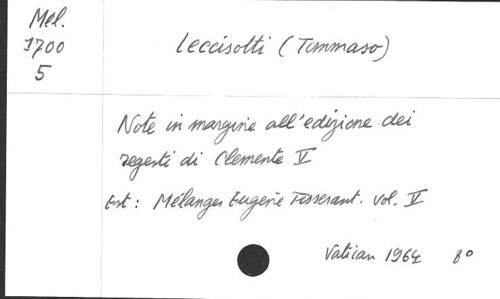 Mel.
1700
5
Leccisotti (Tommaso)
Note in margine all'edizione dei
regesti di Clemente V
Est : Mélanges Eugène Tisserant. vol. V
Vatican 1964 8°